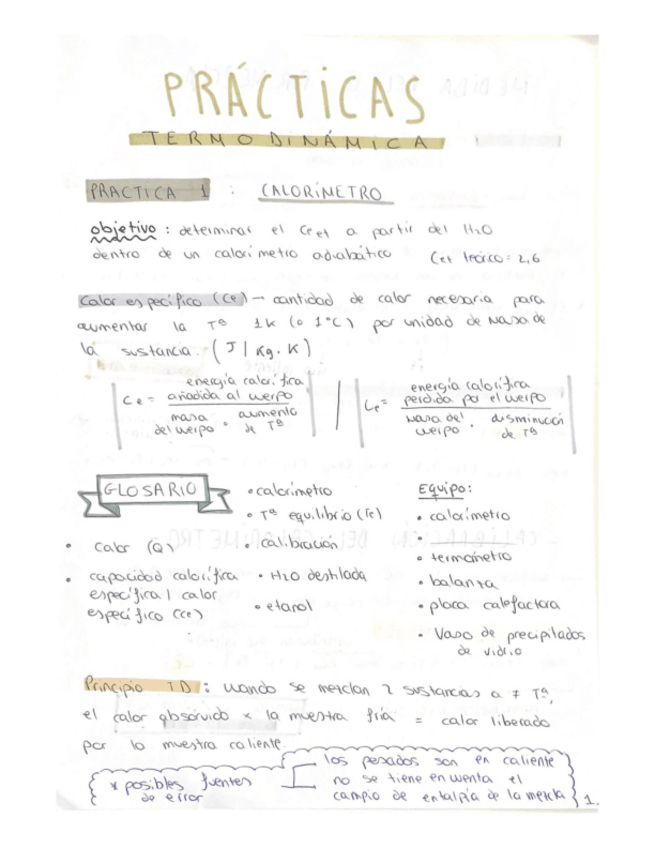 PRÁCTICAS
TERMODINÁMICA
PRACTICA 1 : CALORÍMETRO
objetivo : determinar el Ce et a partir del H2O
dentro de un calorímetro adiabático Cet teórico = 2,6
Calor específico (Ce) → cantidad de calor necesaria para
aumentar la Tª 1K (o 1°C) por unidad de masa de
la sustancia. (J / Kg · K)
Ce = energía calorífica añadida al cuerpo / masa del cuerpo · aumento de Tª
Ce = energía calorífica perdida por el cuerpo / masa del cuerpo · disminución de Tª
GLOSARIO
• calor (Q)
• capacidad calorífica
específica / calor
específico (ce)
• calorímetro
• Tª equilibrio (Te)
• calibración
• H2O destilada
• etanol
Equipo:
• calorímetro
• termómetro
• balanza
• placa calefactora
• Vaso de precipitados
de vidrio
Principio TD : cuando se mezclan 2 sustancias a ≠ Tª,
el calor absorvido x la muestra fría = calor liberado
por la muestra caliente.
* posibles fuentes
de error
los pesados son en caliente
no se tiene en cuenta el
campio de entalpía de la mezcla
1.